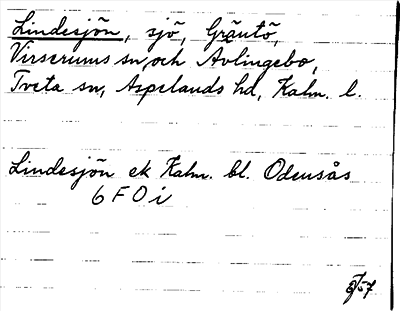 Lindesjön, sjö, Gräntö,
Virserums sn, och Avlingebo,
Tveta sn, Aspelands hd, Kalm. l.
Lindesjön ek Kalm. bl. Odensås
6 F 0 i